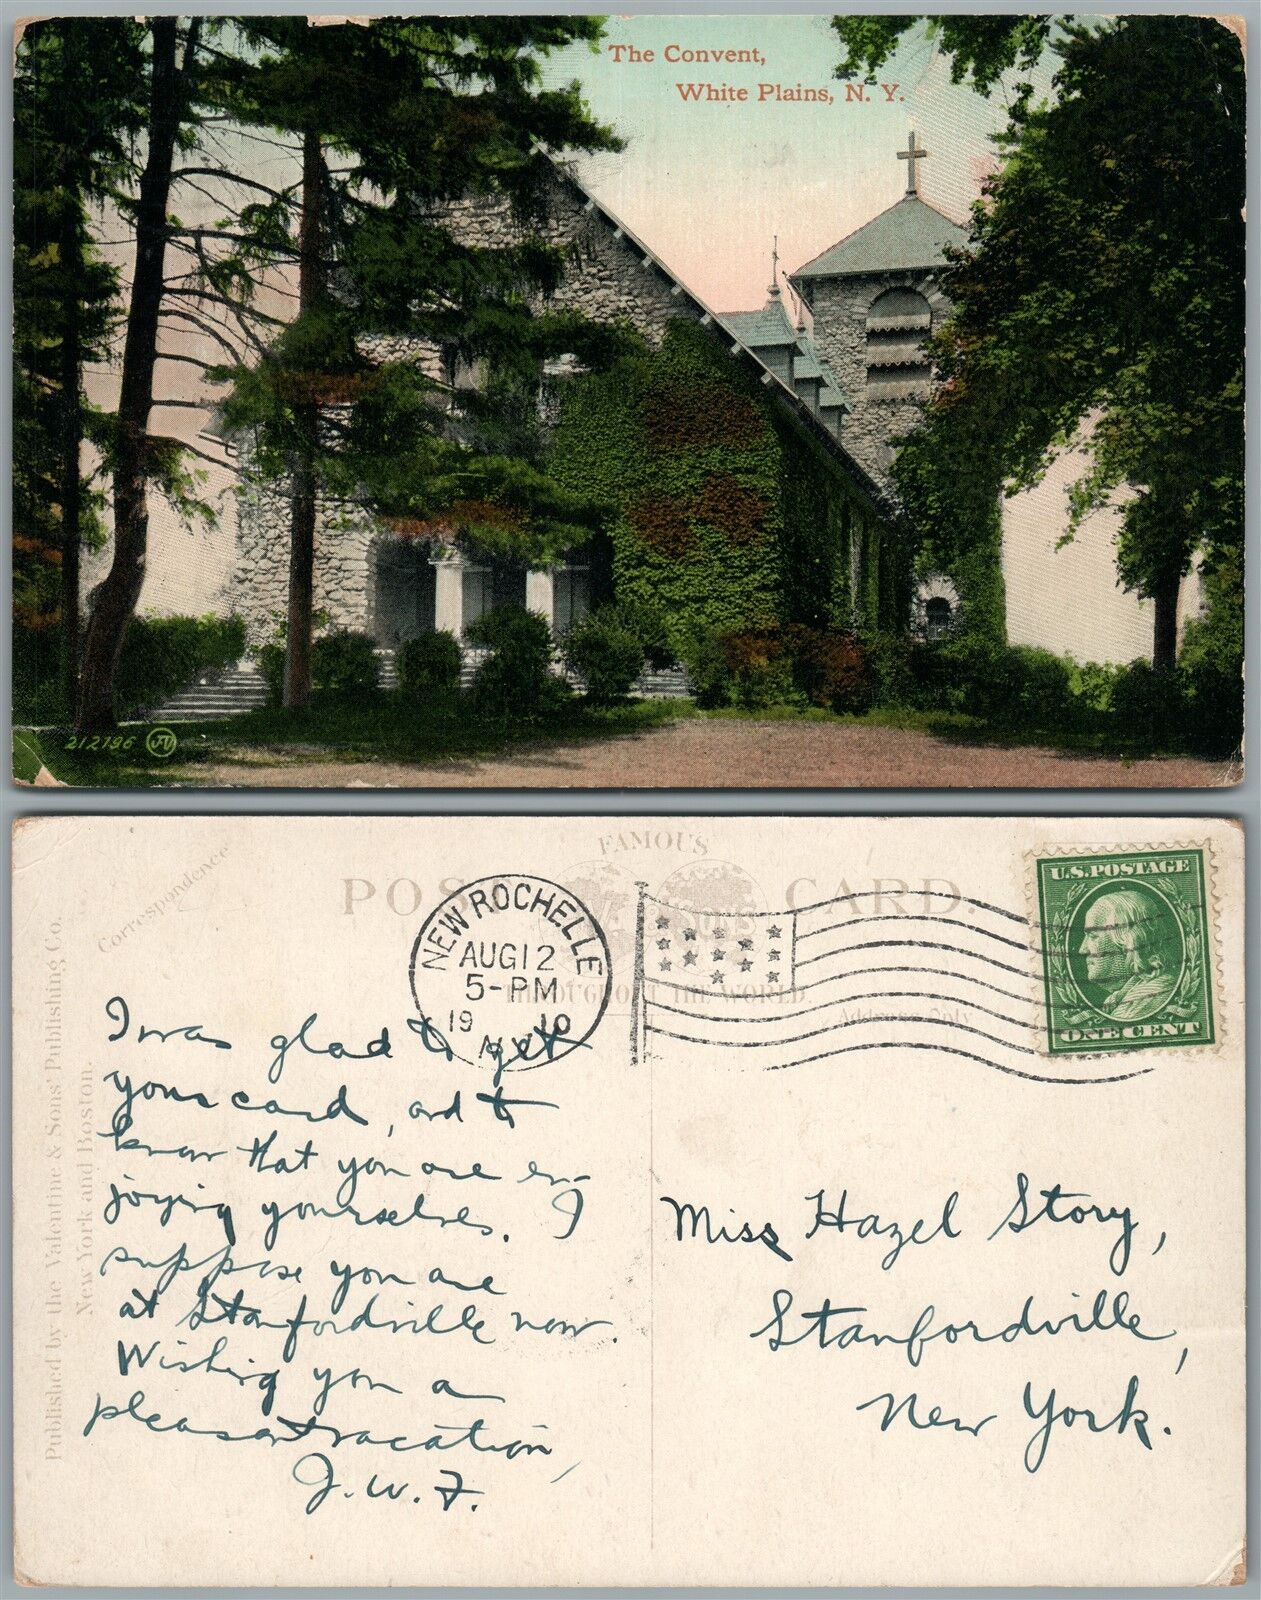 The Convent,
White Plains, N. Y.
212796 JV
Correspondence
FAMOUS
POST CARD.
THROUGHOUT THE WORLD.
Address Only
Published by the Valentine & Sons' Publishing Co.
New York and Boston.
NEW ROCHELLE
AUG 12
5-PM
19 10
N.Y.
U.S. POSTAGE
ONE CENT
I was glad to get
your card, and to
know that you are en-
joying yourselves. I
suppose you are
at Stanfordville now.
Wishing you a
pleasant vacation,
J. W. F.
Miss Hazel Story,
Stanfordville,
New York.